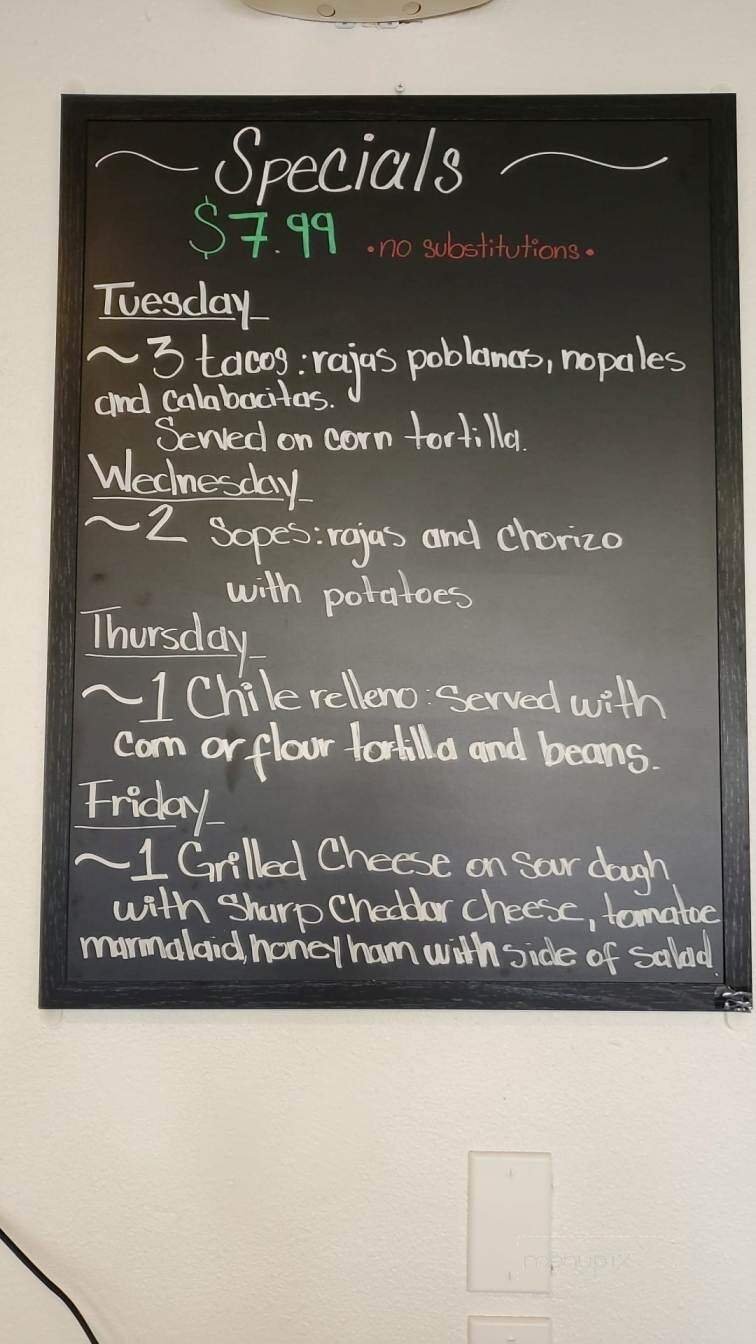 ~ Specials ~
$7.99 •no substitutions•
Tuesday
~3 tacos: rajas poblanas, nopales
and calabacitas.
Served on corn tortilla.
Wednesday
~2 Sopes: rajas and chorizo
with potatoes
Thursday
~1 Chile relleno: Served with
corn or flour tortilla and beans.
Friday
~1 Grilled Cheese on Sour dough
with Sharp Cheddar cheese, tomatoe
marmalaid, honey ham with side of salad.
menupix